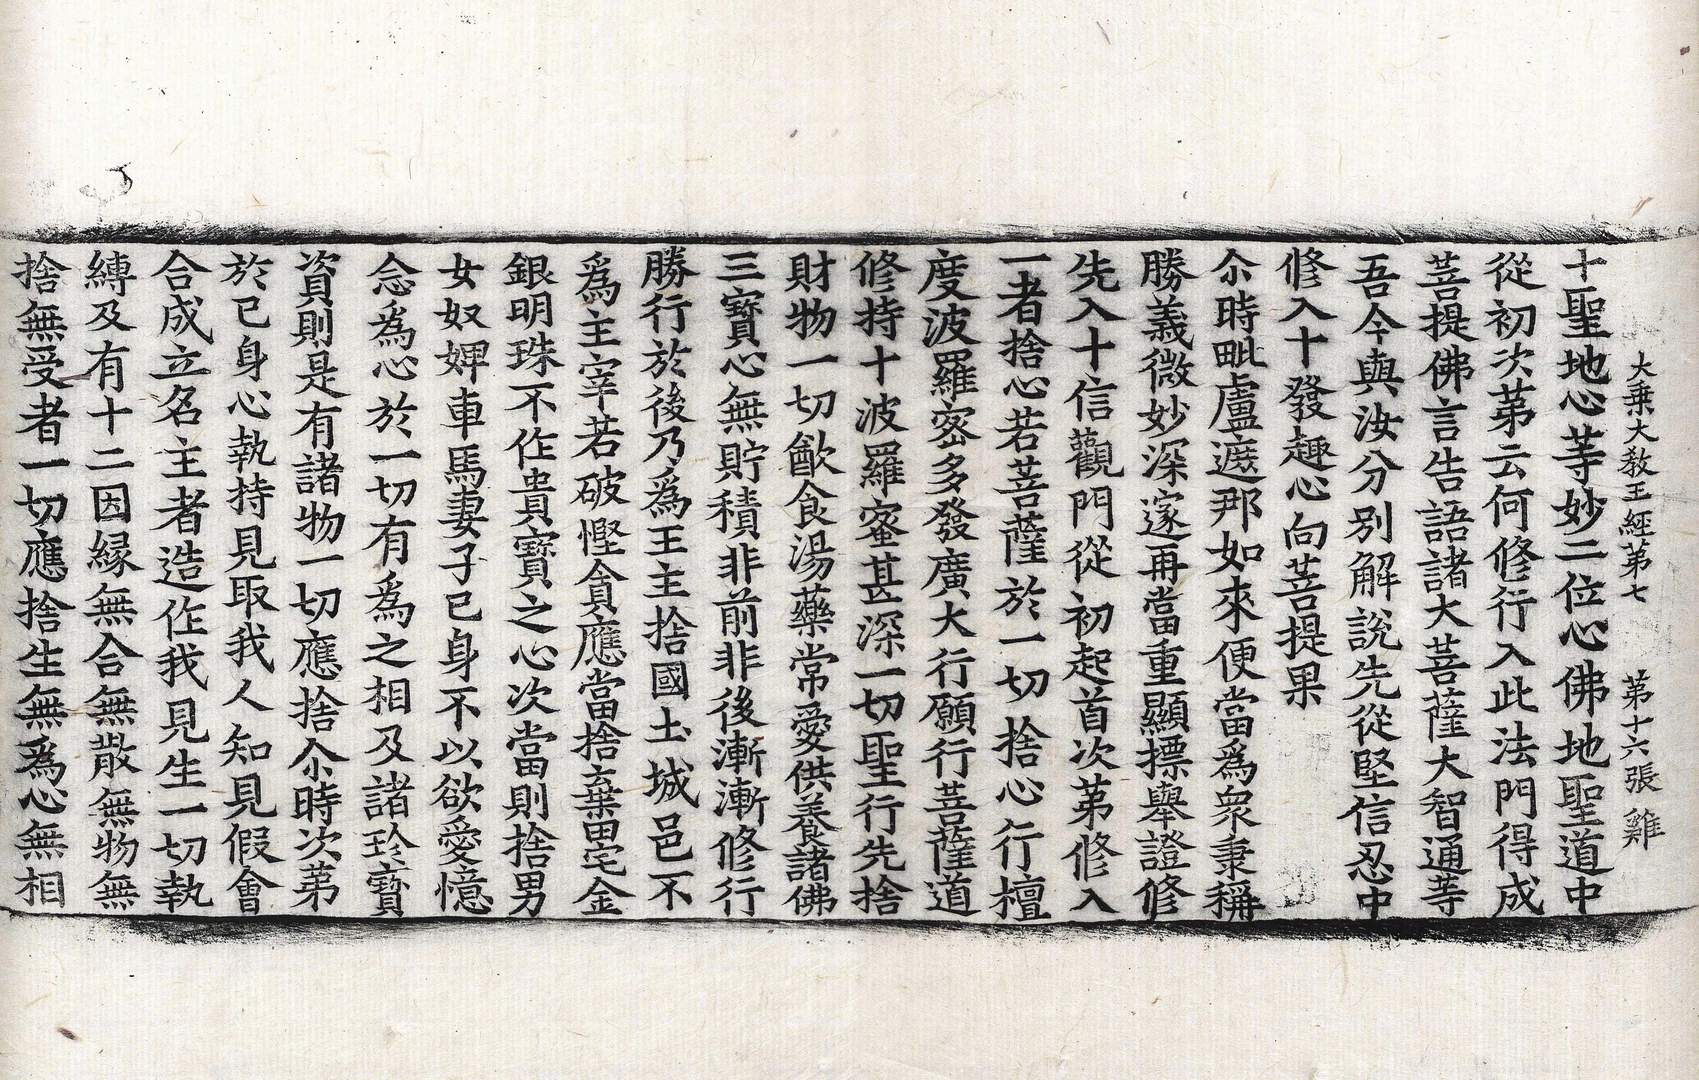 大乗大教王經第七 第十六張 雞
十聖地心等妙二位心佛地聖道中
從初次苐云何修行入此法門得成
菩提佛言告語諸大菩薩大智通等
吾今與汝分別解說先從堅信忍中
修入十發趣心向菩提果
尒時毗盧遮那如來便當爲衆秉稱
勝義微妙深邃再當重顯摽舉證修
先入十信觀門從初起首次苐修入
一者捨心若菩薩於一切捨心行檀
度波羅宻多發廣大行願行菩薩道
修持十波羅蜜甚深一切聖行先捨
財物一切飮食湯藥常愛供養諸佛
三寶心無貯積非前非後漸漸修行
勝行於後乃爲王主捨國土城邑不
爲主宰若破慳貪應當捨弃田宅金
銀明珠不作貴寶之心次當則捨男
女奴婢車馬妻子已身不以欲愛憶
念爲心於一切有爲之相及諸珍寶
資則是有諸物一切應捨尒時次苐
於已身心執持見取我人知見假會
合成立名主者造作我見生一切執
縛及有十二因緣無合無散無物無
捨無受者一切應捨生無爲心無相